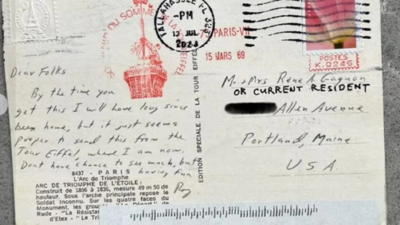 TALLAHASSEE FL 323
-PM
12 JUL
2023
DU SOMME
75 PARIS-VII
15 MARS 69
POSTES
K.0246
Dear Folks
By the time you
get this I will have long since
been home, but it just seems
proper to send this from the
Tour Eiffel, where I am now.
Dont have chance to see much, but
having fun
Roy
8437 - PARIS
L'Arc de Triomphe
ARC DE TRIOMPHE DE L'ÉTOILE.
Construit de 1806 à 1836, mesure 49 m 50 de
hauteur. Sous l'arche principale repose le
Soldat Inconnu. Sur les quatre faces du
Monument, les
Rude - "La Résista
d'Etex - "La Tri
EDITION SPECIALE DE LA TOUR EIFFEL
Mr & Mrs Rene A. Gagnon
OR CURRENT RESIDENT
Allen Avenue
Portland, Maine
USA